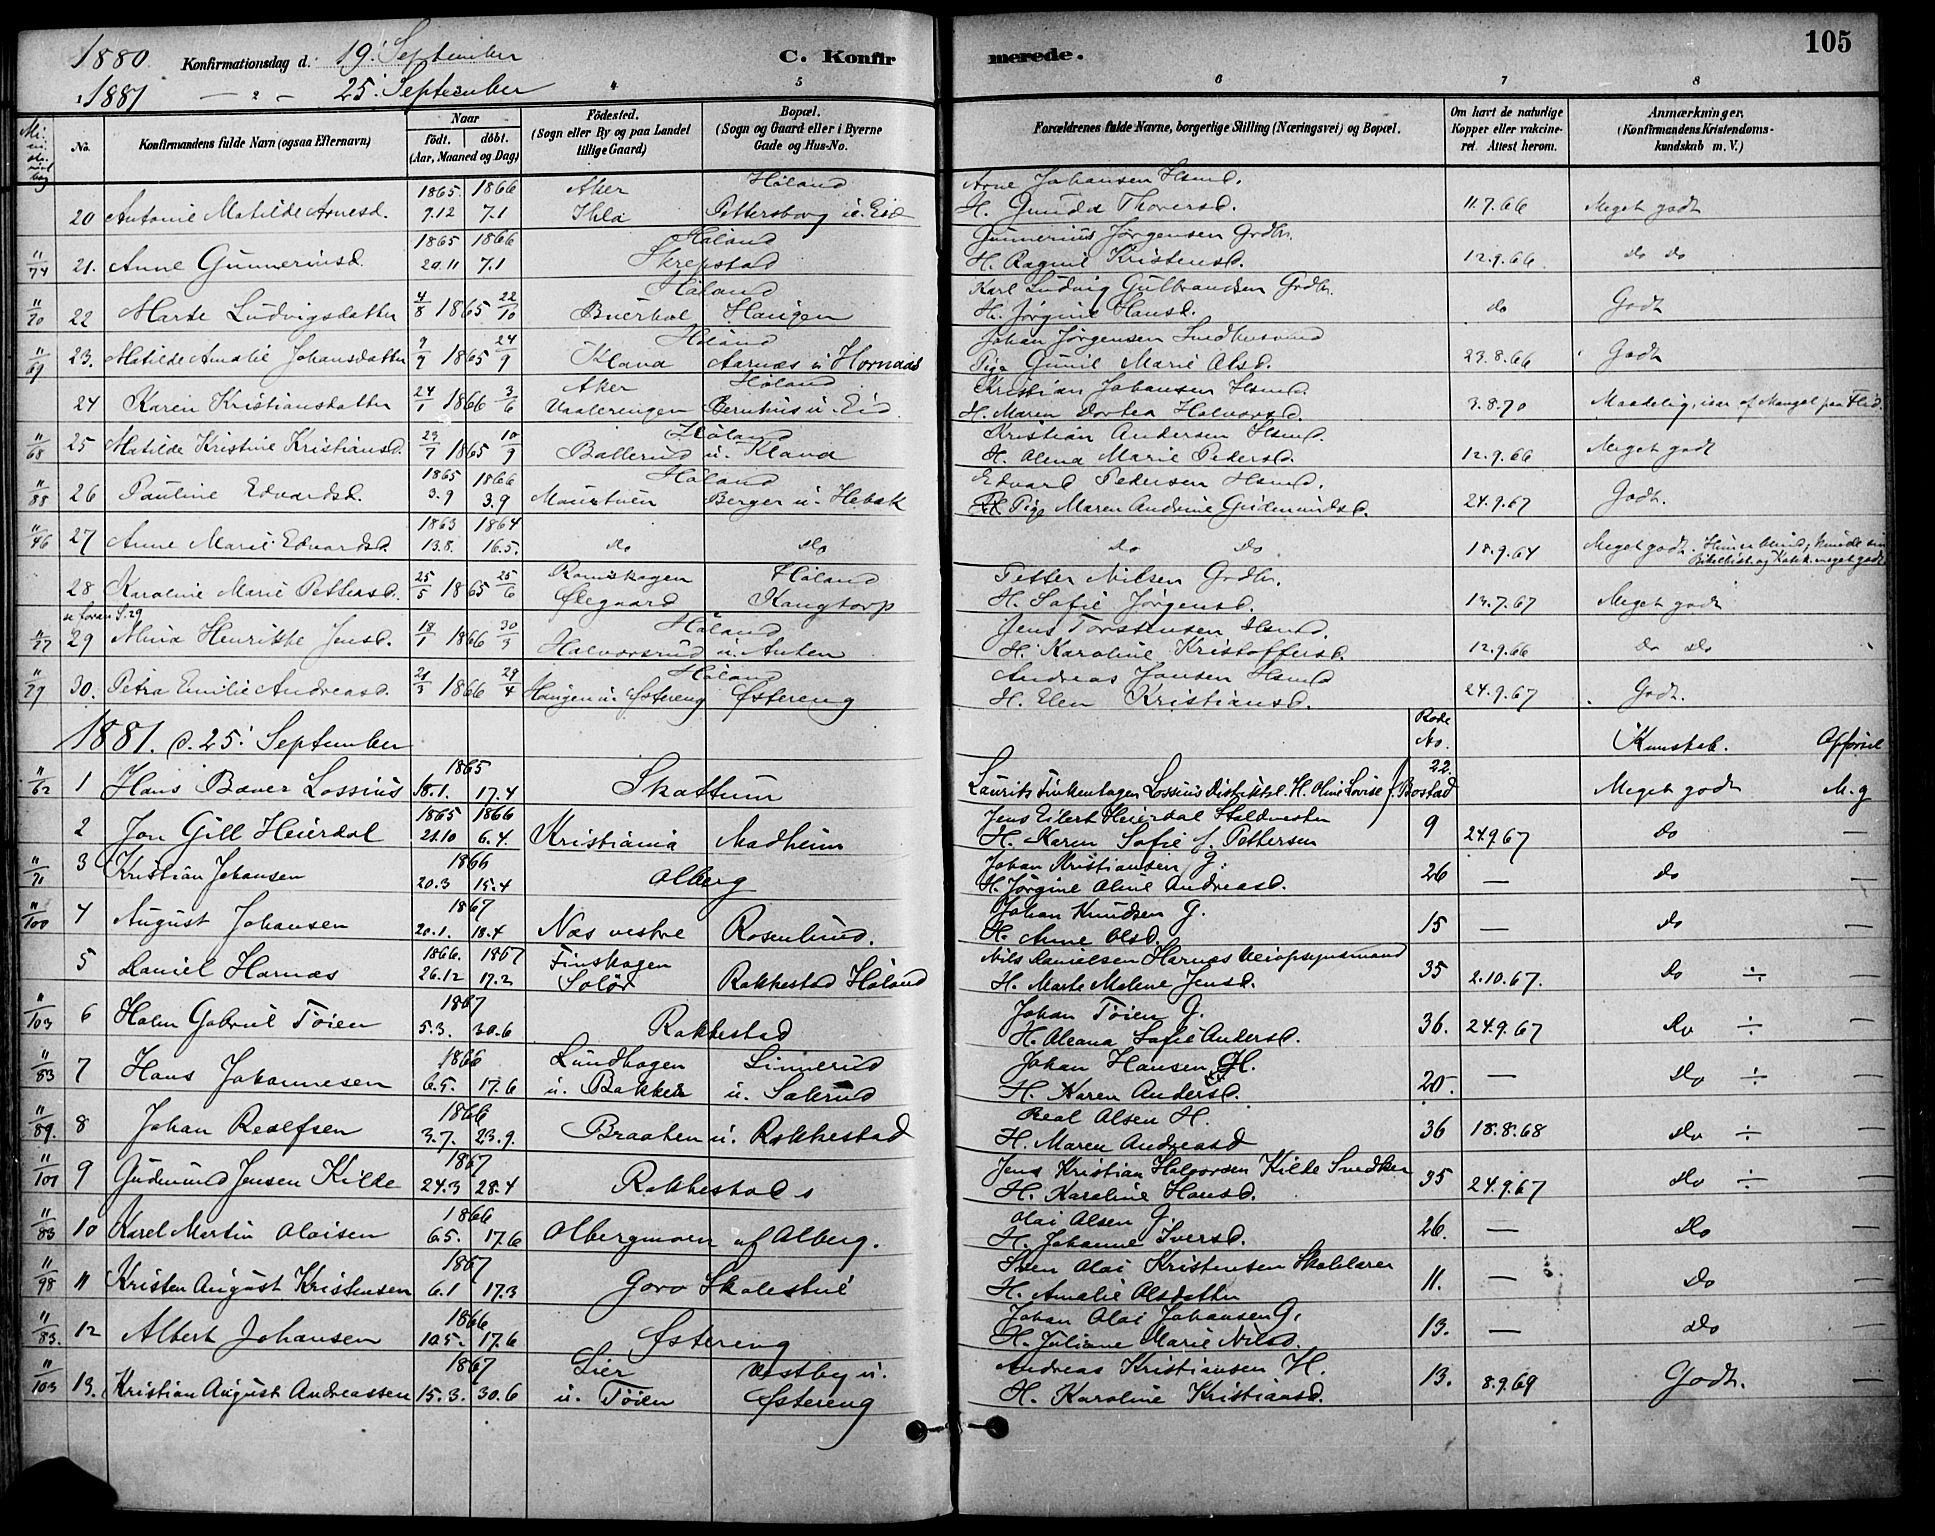 105
1880 Konfirmationsdag d. 19. September C. Konfirmerede.
1881 — " — 25. September
No. Konfirmandens fulde Navn (ogsaa Efternavn) Naar født. døbt. (Aar, Maaned og Dag) Fødested. (Sogn eller By og paa Landet tillige Gaard) Bopæl. (Sogn og Gaard eller i Byerne Gade og Hus-No. Forældrenes fulde Navne, borgerlige Stilling (Næringsvei) og Bopæl. Om havt de naturlige Kopper eller vakcineret. Attest herom. Anmærkninger. (Konfirmandens Kristendomskundskab m. V.)
1865 1866 Aker Høland Arne Johansen Hsmd.
20 Antonie Matilde Arnesd. 9.12 7.1 Ihla Pettersborg u. Eid H. Gunda Thoversd. 11.7.66 Meget godt
1865 1866 Høland Gunnerius Jørgensen Grdbr.
11/74 21. Anne Gunneriusd. 20.11 7.1 Skrepstad H. Ragnil Kristensd. 12.9.66 do do
Høland Karl Ludvig Gulbrandsen Grdbr.
11/70 22 Marte Ludvigsdatter 4/8 1865 22/10 Buerhol Haugen H. Jørgine Hansd. do Godt
Høland Johan Jørgensen
11/69 23. Matilde Amalie Johansdatter 9/7 1865 24/9 Klava Aarnæs u. Hornaas Pige Gunil Marie Olsd. 23.8.66 Godt
Aker Høland Kristian Johansen Hsmd.
24 Karen Kristiansdatter 24/1 1866 3/6 Vaalerengen Bernhus u. Eid. H. Maren Dortea Halvorsd. 3.8.70 Maadelig, især af Mangel paa Flid.
Høland Kristian Andersen Hsmd.
11/68 25 Matilde Kristine Kristiansd. 23/7 1865 10/9 Ballerud u. Kland H. Olena Marie Pedersd. 12.9.66 Meget godt
1865 1866 Høland Edvard Pedersen Hsmd.
11/88 26 Pauline Edvardsd. 3.9 3.9 Maurtuen Berger u. Hebæk Pige Maren Andrine Gudmundsd. 24.9.67 Godt.
1863 1864
11/46 27 Anne Marie Edvardsd. 13.8. 16.5. do do do do 18.9.64 Meget godt. Hun er blind; kunde sin Bibelhist. og Katek. meget godt
Romskogen Høland Petter Nilsen Grdbr.
28 Karoline Marie Pettersd. 25/5 1865 25/6 Ølegaard Kangtorp H. Sofie Jørgensd. 13.7.67 Meget godt
se foran S. 29 Høland Jens Torstensen Hsmd.
11/77 29 Alma Henrikke Jensd. 18/1 1866 30/3 Halvorsrud u. Anken H. Karoline Kristoffersd. 12.9.66 do do
Høland Andreas Jansen Hsmd
11/79 30. Petra Emilie Andreasd. 21/3 1866 29/4 Haugen u. Østereng Østereng H. Elen Kristiansd. 24.9.67 Godt.
1881. d. 25. September Rode No. Kunskab. Opførsel
1865 22.
11/62 1 Hans Baver Lossius 18.1. 17.4 Skattum Laurits Finkenhagen Lossius Distriktsl. H. Oline Lovise f. Bostad Meget godt M. g
1865 1866 Jens Eilert Heierdal Staldmester
2 Jon Gill Heierdal 21.10 6.4. Kristiania Aadheim H. Karen Sofie f. Pettersen 9 24.9.67 do —
1866 Johan Kristiansen G.
11/71 3 Kristian Johansen 20.3 15.4 Olberg H. Jørgine Oline Andreasd. 26 — do —
1867 Johan Knudsen G.
11/100 4 August Johansen 20.1. 18.4 Næs vestre Rosenlund. H. Anne Olsd. 15 — do —
1866. 1867 Finskogen Nils Danielsen Harnæs Veiopsynsmand
5 Daniel Harnæs 26.12 17.2 Solør Rakkestad Høland H. Marte Malene Jensd. 35 2.10.67. do ÷ —
1867 Johan Tøien G.
11/103 6 Halm Gabriel Tøien 5.3. 30.6 Rakkestad H. Oleana Sofie Andersd. 36. 24.9.67 do ÷ —
1866 Lundhagen Linnerud Johan Hansen H.
11/83 7 Hans Johannesen 6.5. 17.6 u. Bakker u. Salerud H. Karen Andersd. 20. — do ÷ —
1866 Olsen H.
11/89. 8 Johan 3.7. 23.9. Braaten u. Rakkestad H. Maren Andreasd 36 18.8.68 do ÷ —
1867 Jens Kristian Halvorsen Kilde Snedker
11/101 9 Gudmund Jensen Kilde 24.3 28.4 Rakkestad H. Karoline Hansd. 35 24.9.67 do ÷ —
1866 Olai Olsen G.
11/83 10 Karel Martin Olaisen 6.5. 17.6 Olbergmoen af Olberg. H. Johanne Iversd. 26. — do —
1867 Sven Olai Kristensen Skolelærer
11/98 11 Kristen August Kristensen 6.1 17.3 Goro Skolestue H. Amalie Olsdatter 11. — do —
1866 Johan Olai Johansen G.
11/83. 12 Albert Johansen 10.5. 17.6 Østereng H. Juliane Marie Nilsd. 13. — do —
1867 Lier Vestby u. Andreas Kristiansen H.
11/103 13. Kristian August Andreassen 15.3. 30.6 u. Tøien Østereng H. Karoline Kristiansd. 13. 8.9.69 Godt. —